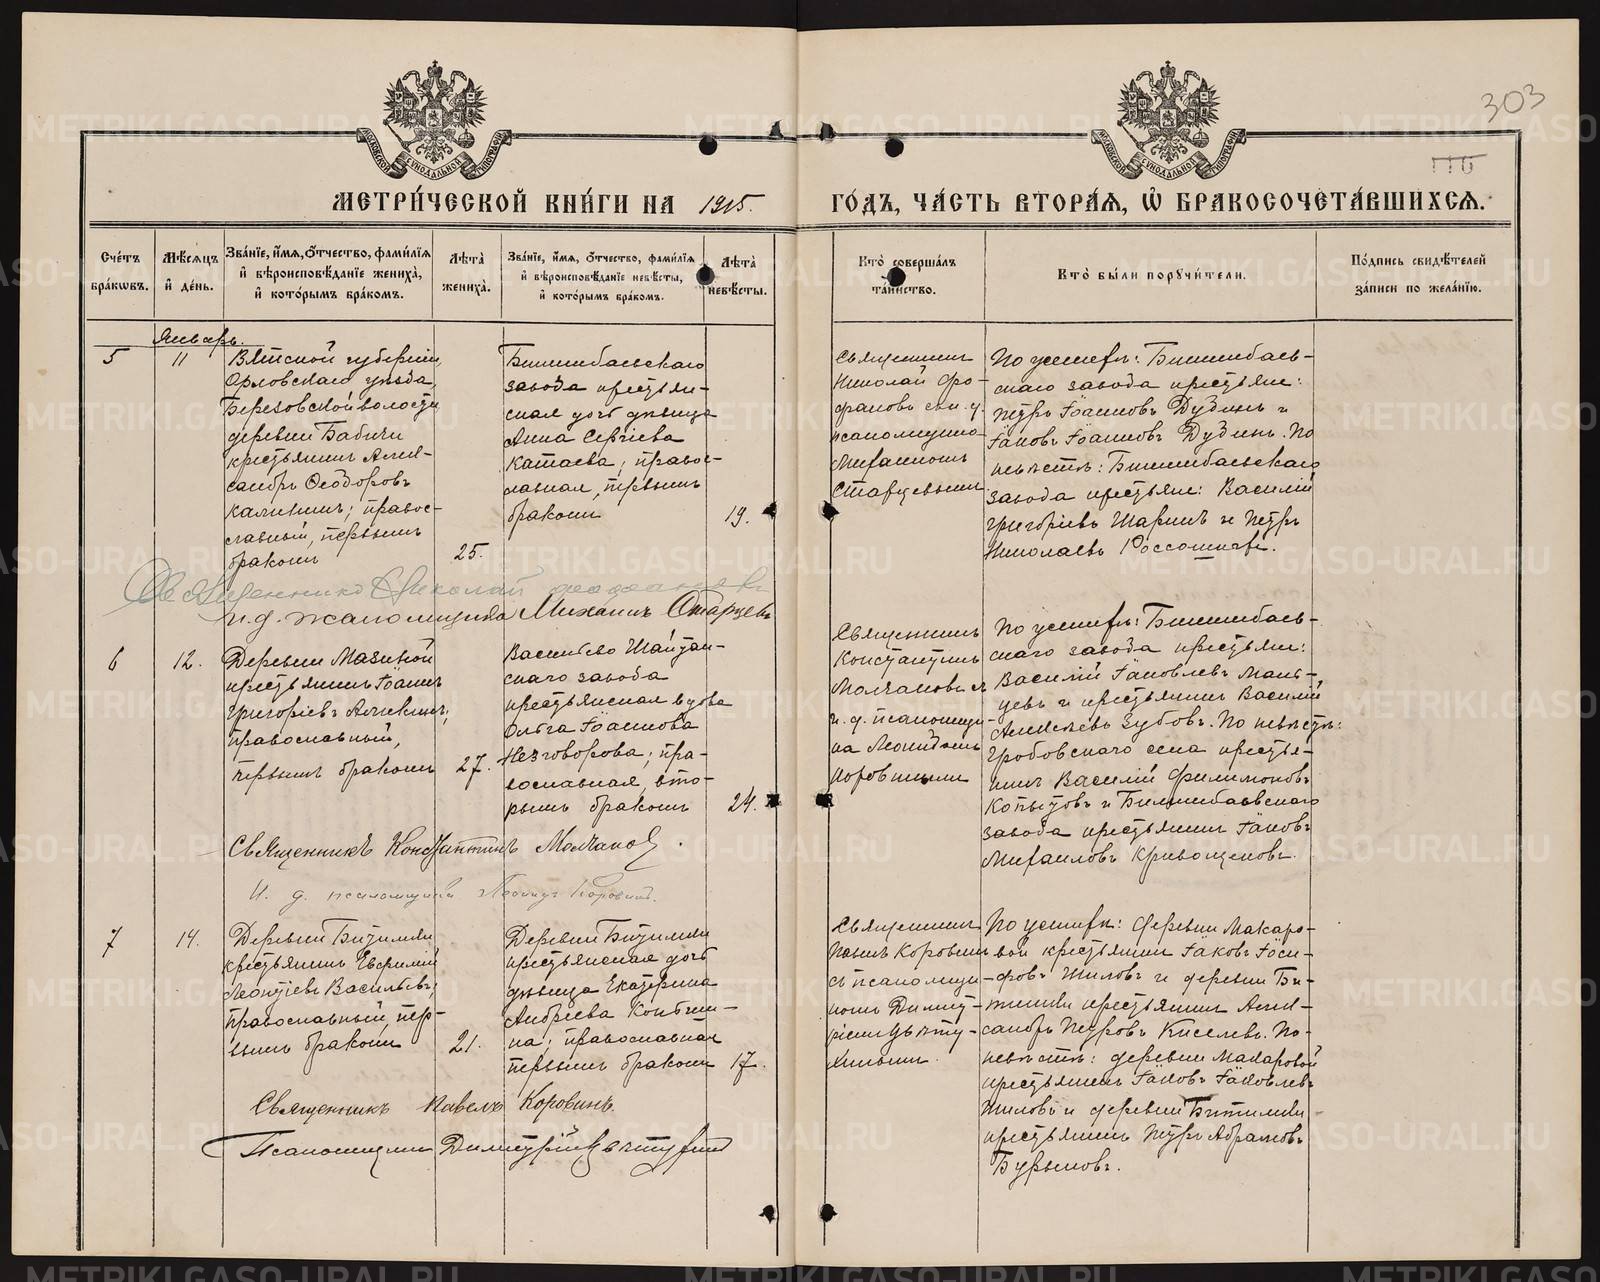 303
МОСКОВСКОЙ СѴНОДАЛЬНОЙ ТИПОГРАФІИ
МЕТРИ́ЧЕСКОЙ КНИ́ГИ НА 1915.
ГО́ДЪ, ЧА́СТЬ ВТОРА́Я, Ѡ БРАКОСОЧЕТА́ВШИХСЯ.
Сче́тъ бра́кωвъ.
Мѣ́сяцъ и де́нь.
Зва́нїе, и́мя, о́тчество, фами́лїя и вѣроисповѣ́данїе жениха̀, и кото́рымъ бра́комъ.
Лѣ́та жениха̀.
Зва́нїе, и́мя, о́тчество, фами́лїя и вѣроисповѣ́данїе невѣ́сты, и кото́рымъ бра́комъ.
Лѣ́та невѣ́сты.
Кто̀ соверша́лъ та́инство.
Кто̀ бы́ли поручи́тели.
По́дпись свидѣ́телей за́писи по жела́нїю.
Январь.
5
11
Вятской губерніи,
Орловскаго уѣзда,
Березовской волости
деревни Бабичи
крестьянинъ Алек-
сандръ Ѳеодоровъ
Калининъ; правос-
лавный, первымъ
бракомъ
25.
Билимбаевскаго
завода крестьян-
ская дочь дѣвица
Анна Сергіева
Катаева; правос-
лавная, первымъ
бракомъ
19.
Священникъ
Николай Фо-
фановъ съ и. д.
псаломщика
Михаиломъ
Старцевымъ
По женихѣ: Билимбаев-
скаго завода крестьяне:
Петръ Іоанновъ Дудинъ и
Іаковъ Іоанновъ Дудинъ. По
невѣстѣ: Билимбаевскаго
завода крестьяне: Василій
Григоріевъ Шаринъ и Петръ
Николаевъ Россошневъ.
Священникъ Николай Фофановъ
и. д. псаломщика Михаилъ Старцевъ
6
12.
Деревни Мазиной
крестьянинъ Іоаннъ
Григоріевъ Алекинъ;
православный,
первымъ бракомъ
27.
Васильево Шайтан-
скаго завода
крестьянская вдова
Ольга Іоаннова
Незговорова; пра-
вославная, вто-
рымъ бракомъ
24.
Священникъ
Константинъ
Молчановъ съ
и. д. псаломщи-
ка Леонидомъ
Коровинымъ
По женихѣ: Билимбаев-
скаго завода крестьяне:
Василій Іаковлевъ Маль-
цевъ и крестьянинъ Василій
Алексѣевъ Зубовъ. По невѣстѣ:
Гробовскаго села крестья-
нинъ Василій Филимоновъ
Копытовъ и Билимбаевскаго
завода крестьянинъ Іаковъ
Михаиловъ Кривощековъ.
Священникъ Константинъ Молчановъ.
И. д. псаломщика Леонидъ Коровинъ.
7
14.
Деревни Битимки
крестьянинъ Евфимій
Леонтіевъ Васильевъ;
православный, пер-
вымъ бракомъ
21.
Деревни Битимки
крестьянская дочь
дѣвица Екатерина
Андреева
православная
первымъ бракомъ
17.
Священникъ
Павелъ Коровинъ
съ псаломщи-
комъ Димит-
ріемъ Цвѣту-
хинымъ.
По женихѣ: деревни Макаро-
вой крестьянинъ Іаковъ Іоси-
фовъ Шиловъ и деревни Би-
тимки крестьянинъ Алек-
сандръ Петровъ Киселевъ. По
невѣстѣ: деревни Макаровой
крестьянинъ Іаковъ Іаковлевъ
Шиловъ и деревни Битимки
крестьянинъ Петръ Абрамовъ
Бурыловъ.
Священникъ Павелъ Коровинъ
Псаломщикъ Димитрій Цвѣтухинъ
METRIKI.GASO-URAL.RU